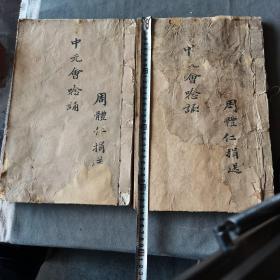 中元會唸誦
周體仁捐送
中元會唸誦
周體仁捐送